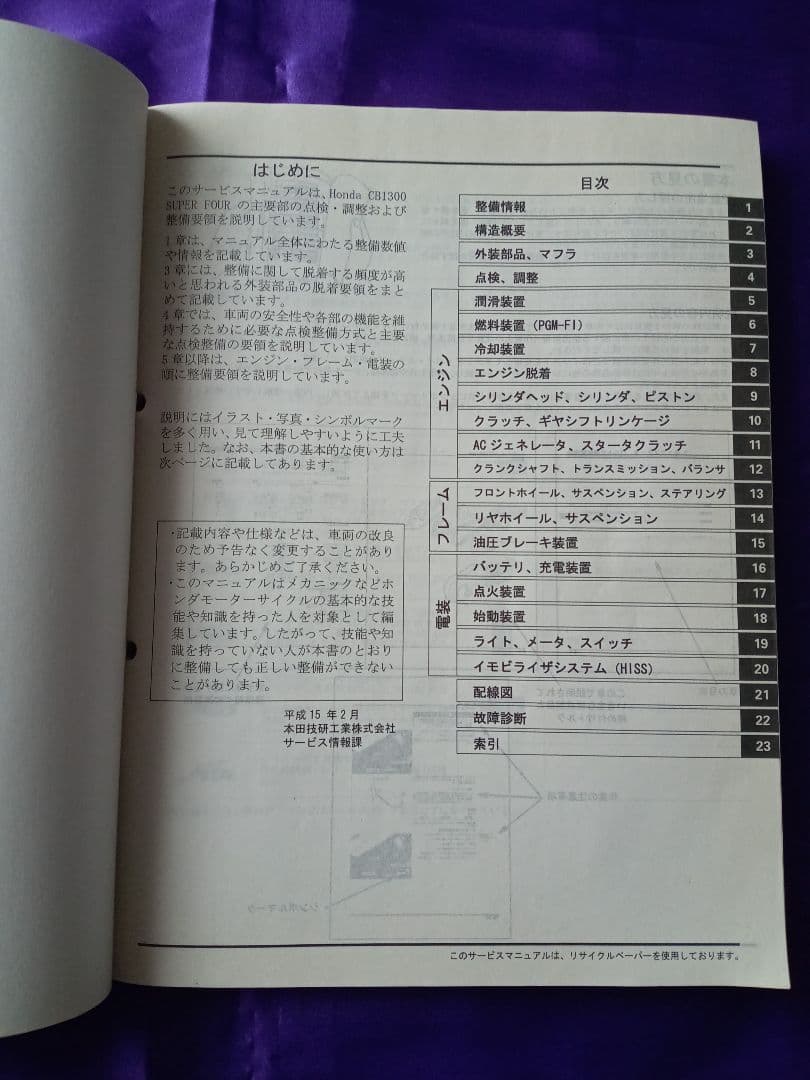 はじめに
このサービスマニュアルは、Honda CB1300
SUPER FOUR の主要部の点検・調整および
整備要領を説明しています。
1章は、マニュアル全体にわたる整備数値
や情報を記載しています。
3章には、整備に関して脱着する頻度が高
いと思われる外装部品の脱着要領をまと
めて記載しています。
4章では、車両の安全性や各部の機能を維
持するために必要な点検整備方式と主要
な点検整備の要領を説明しています。
5章以降は、エンジン・フレーム・電装の
順に整備要領を説明しています。
説明にはイラスト・写真・シンボルマーク
を多く用い、見て理解しやすいように工夫
しました。なお、本書の基本的な使い方は
次ページに記載してあります。
・記載内容や仕様などは、車両の改良
のため予告なく変更することがあり
ます。あらかじめご了承ください。
・このマニュアルはメカニックなどホ
ンダモーターサイクルの基本的な技
能や知識を持った人を対象として編
集しています。したがって、技能や知
識を持っていない人が本書のとおり
に整備しても正しい整備ができない
ことがあります。
平成15年2月
本田技研工業株式会社
サービス情報課
目次
整備情報 1
構造概要 2
外装部品、マフラ 3
点検、調整 4
エンジン
潤滑装置 5
燃料装置 (PGM-FI) 6
冷却装置 7
エンジン脱着 8
シリンダヘッド、シリンダ、ピストン 9
クラッチ、ギヤシフトリンケージ 10
ACジェネレータ、スタータクラッチ 11
クランクシャフト、トランスミッション、バランサ 12
フレーム
フロントホイール、サスペンション、ステアリング 13
リヤホイール、サスペンション 14
油圧ブレーキ装置 15
電装
バッテリ、充電装置 16
点火装置 17
始動装置 18
ライト、メータ、スイッチ 19
イモビライザシステム (HISS) 20
配線図 21
故障診断 22
索引 23
このサービスマニュアルは、リサイクルペーパーを使用しております。